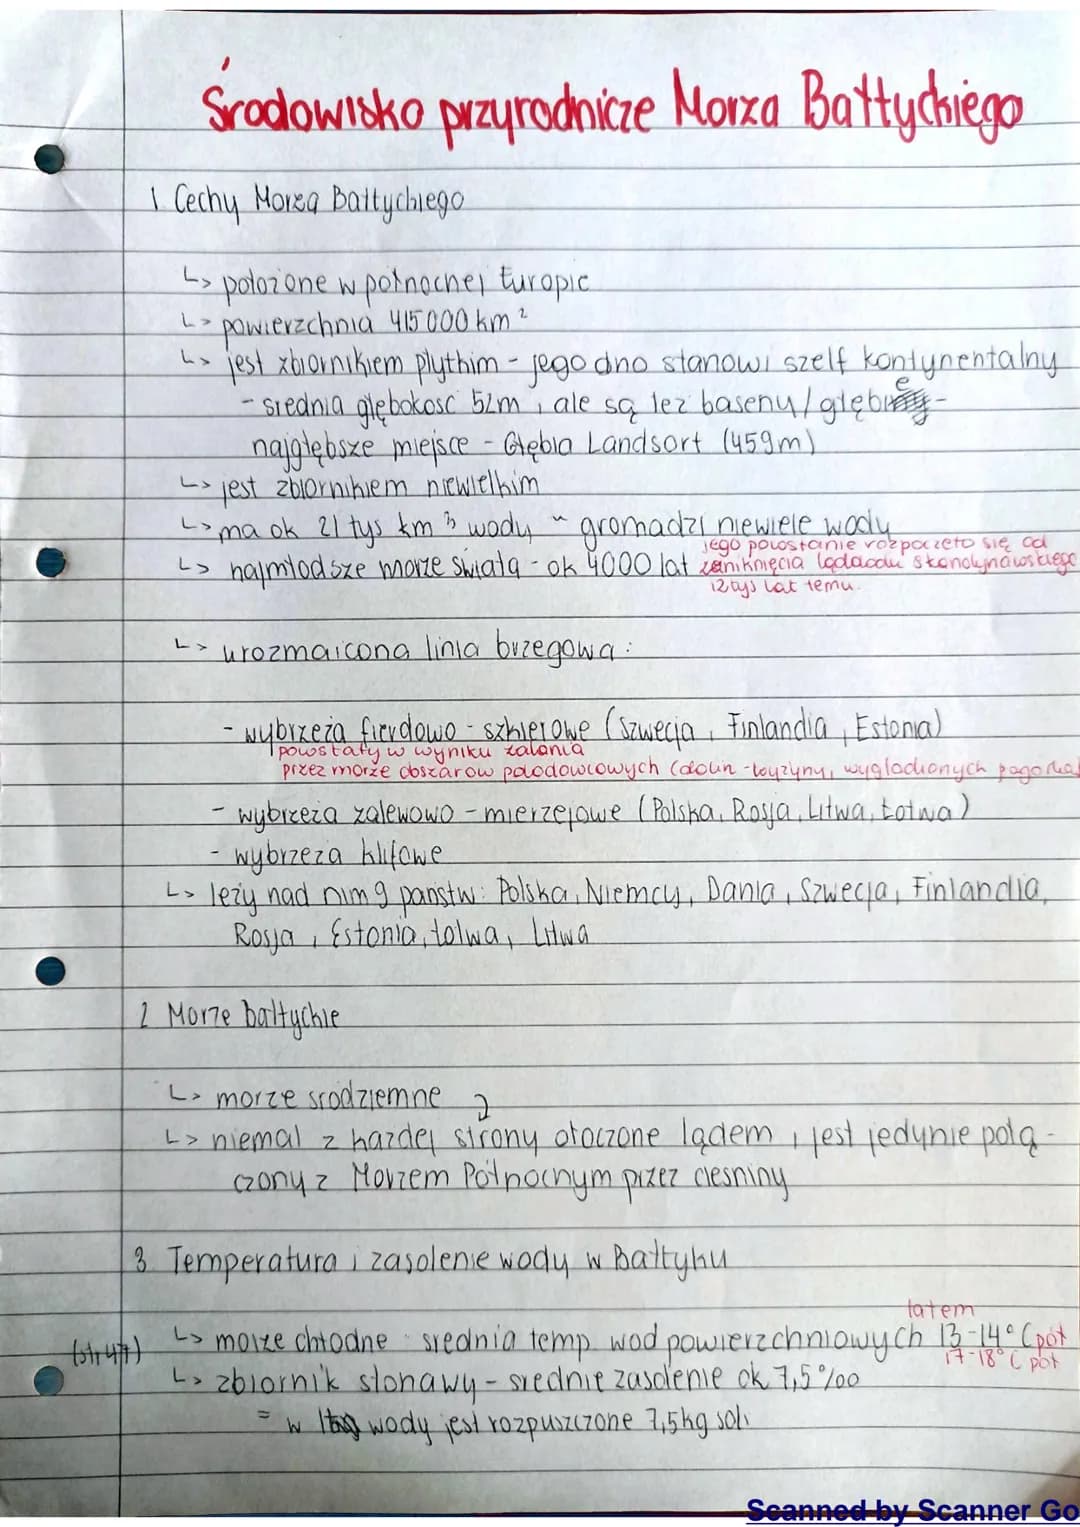 Środowisko przyrodnicze Morza Bałtyckiego
1. Cechy Morza Bałtyckiego
↳ położone w północnej Europie
↳ powierzchnia 415 000 km²
↳ jest zbiornikiem płytkim - jego dno stanowi szelf kontynentalny
- średnia głębokość 52m, ale są też baseny/głębie -
najgłębsze miejsce - Głębia Landsort (459m)
↳ jest zbiornikiem niewielkim
↳ ma ok 21 tys km³ wody - gromadzi niewiele wody
↳ najmłodsze morze świata - ok 4000 lat
jego powstanie rozpoczęło się od
zaniknięcia lądolodu skandynawskiego
12 tys lat temu.
↳ urozmaicona linia brzegowa:
- wybrzeża fierdowo - szkierowe (Szwecja, Finlandia, Estonia)
powstały w wyniku zalania
przez morze obszarów polodowcowych (dolin - wyżyny, wygładzonych pagórka)
- wybrzeża zalewowo - mierzejowe (Polska, Rosja, Litwa, Łotwa)
- wybrzeża klifowe
↳ leży nad nim 9 państw: Polska, Niemcy, Dania, Szwecja, Finlandia,
Rosja, Estonia, Łotwa, Litwa
2. Morze bałtyckie
↳ morze śródziemne
↳ niemal z każdej strony otoczone lądem, jest jedynie połą-
czony z Morzem Północnym przez cieśniny
3. Temperatura i zasolenie wody w Bałtyku
latem
(str 47) ↳ morze chłodne: średnia temp. wod powierzchniowych 13-14°C pół
17-18°C poł
↳ zbiornik słonawy - średnie zasolenie ok 7,5‰
= w wody jest rozpuszczone 7,5kg soli
Scanned by Scanner Go